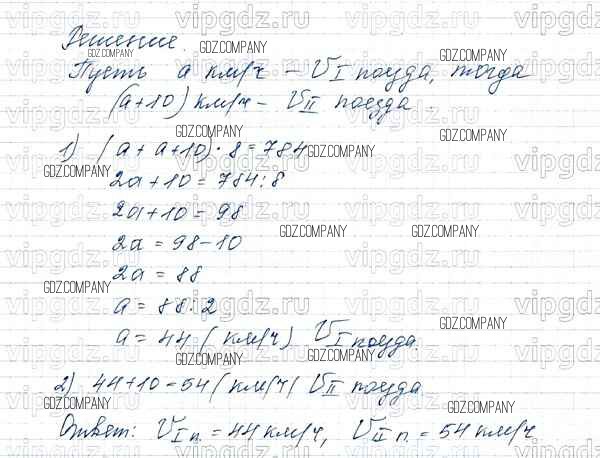 Решение.
Пусть a км/ч – V I поезда, тогда
(a+10) км/ч – V II поезда.
1) (a + a+10) · 8 = 784
2a+10 = 784:8
2a+10 = 98
2a = 98-10
2a = 88
a = 88:2
a = 44 (км/ч) V I поезда.
2) 44+10=54 (км/ч) V II поезда
Ответ: V I п. = 44 км/ч, V II п. = 54 км/ч
GDZ.COMPANY
vipgdz.ru